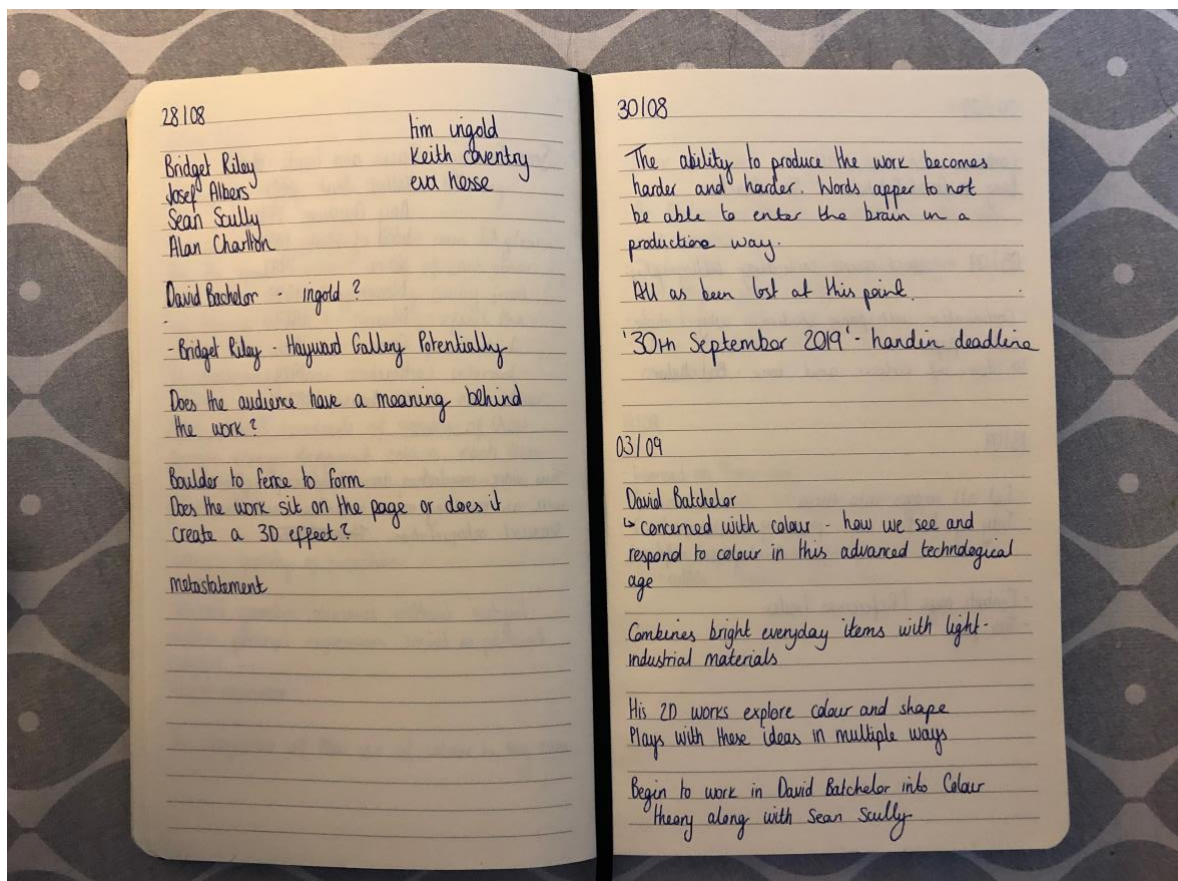 28/08
Bridget Riley
Josef Albers
Sean Scully
Alan Charlton
tim ingold
Keith coventry
eva hesse
David Bachelor - ingold ?
- Bridget Riley - Hayward Gallery Potentially
Does the audience have a meaning behind
the work ?
Boulder to fence to form
Does the work sit on the page or does it
create a 3D effect ?
metastatement
30/08
The ability to produce the work becomes
harder and harder. Words apper to not
be able to enter the brain in a
productive way.
All as been lost at this point.
'30th September 2019' - handin deadline
03/09
David Batchelor
↳ concerned with colour - how we see and
respond to colour in this advanced technological
age
Combines bright everyday items with light-
industrial materials
His 2D works explore colour and shape
Plays with these ideas in multiple ways
Begin to work in David Batchelor into Colour
theory along with Sean Scully